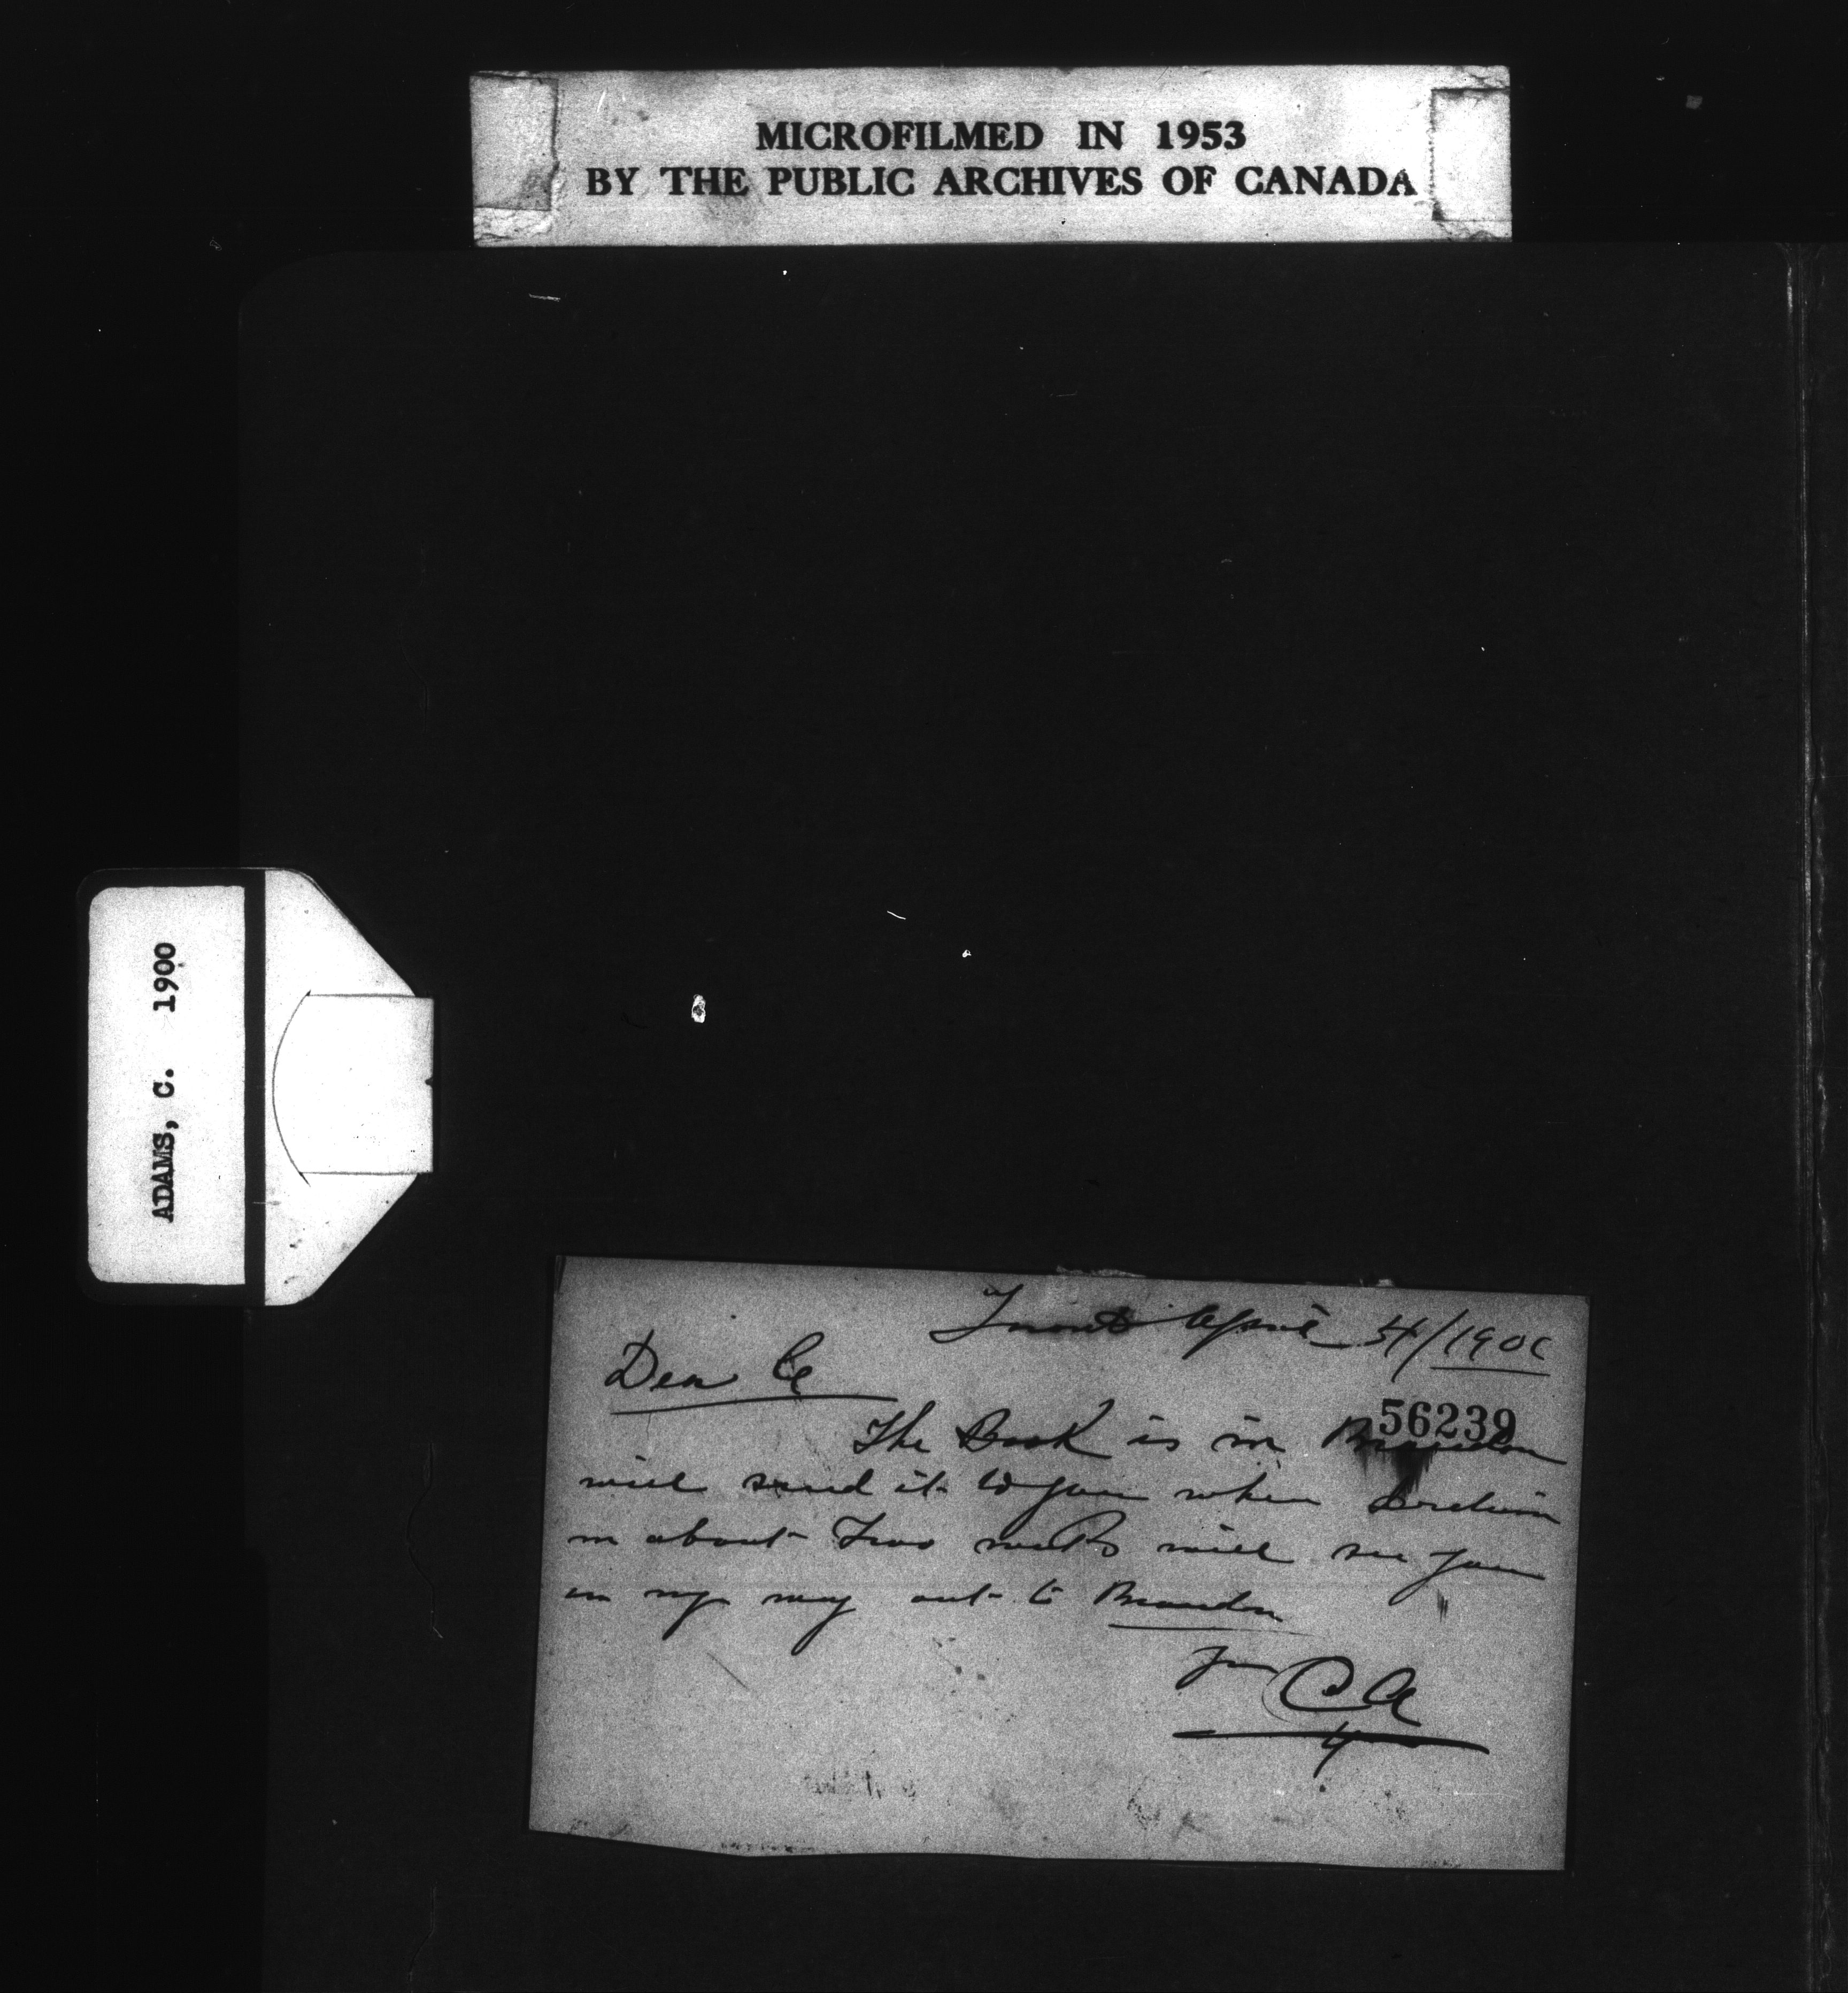 MICROFILMED IN 1953
BY THE PUBLIC ARCHIVES OF CANADA
ADAMS, C. 1900
Toronto April 5th/1900
Dear
56239
The Book is in Brandon
will send it to you when
in about Two weeks will see you
on my way out to Brandon
Your CA